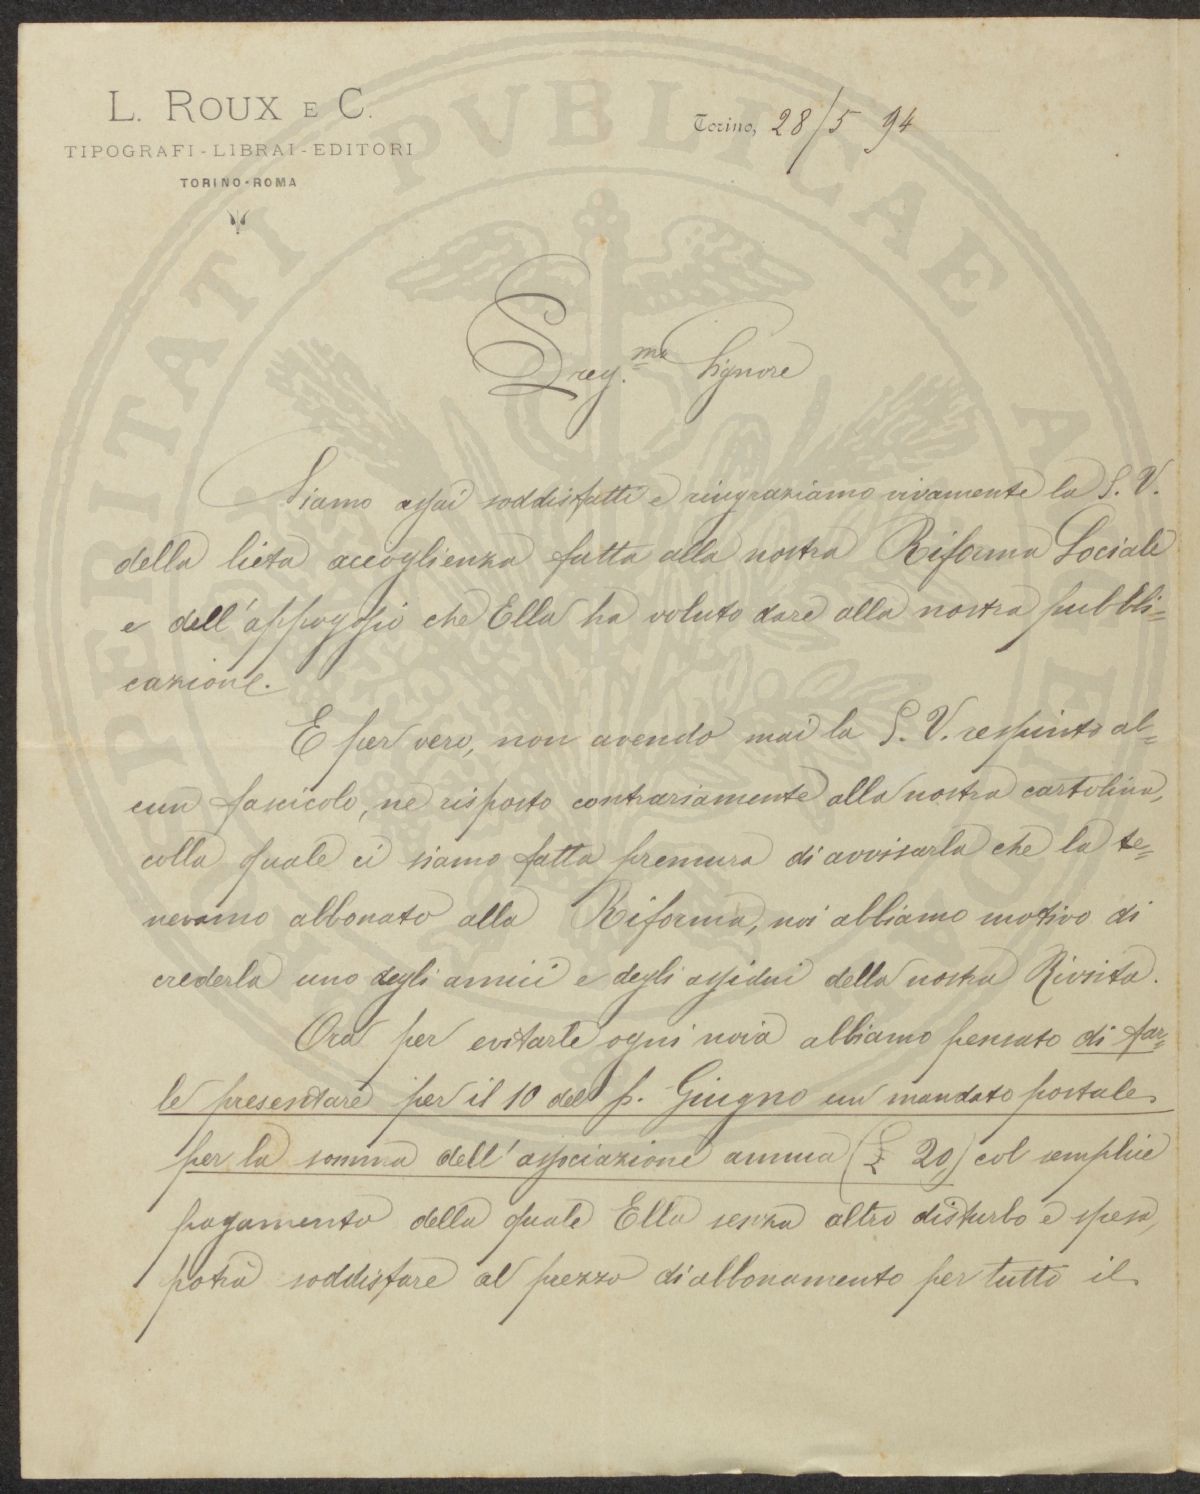 L. ROUX E C.
TIPOGRAFI-LIBRAI-EDITORI
TORINO-ROMA
Torino, 28/5 94
Preg.mo Signore
Siamo assai soddisfatti e ringraziamo vivamente la S. V.
della lieta accoglienza fatta alla nostra Riforma Sociale
e dell'appoggio che Ella ha voluto dare alla nostra pubbli=
cazione.
E per vero, non avendo mai la S. V. respinto al=
cun fascicolo, ne risposto contrariamente alla nostra cartolina,
colla quale ci siamo fatta premura di avvisarla che la te=
nevamo abbonato alla Riforma, noi abbiamo motivo di
crederla uno degli amici e degli assidui della nostra Rivista.
Ora per evitarle ogni noia abbiamo pensato di far=
le presentare per il 10 del p. Giugno un mandato postale
per la somma dell'associazione annua (£ 20) col semplice
pagamento della quale Ella senza altro disturbo e spesa,
potrà soddisfare al prezzo di abbonamento per tutto il